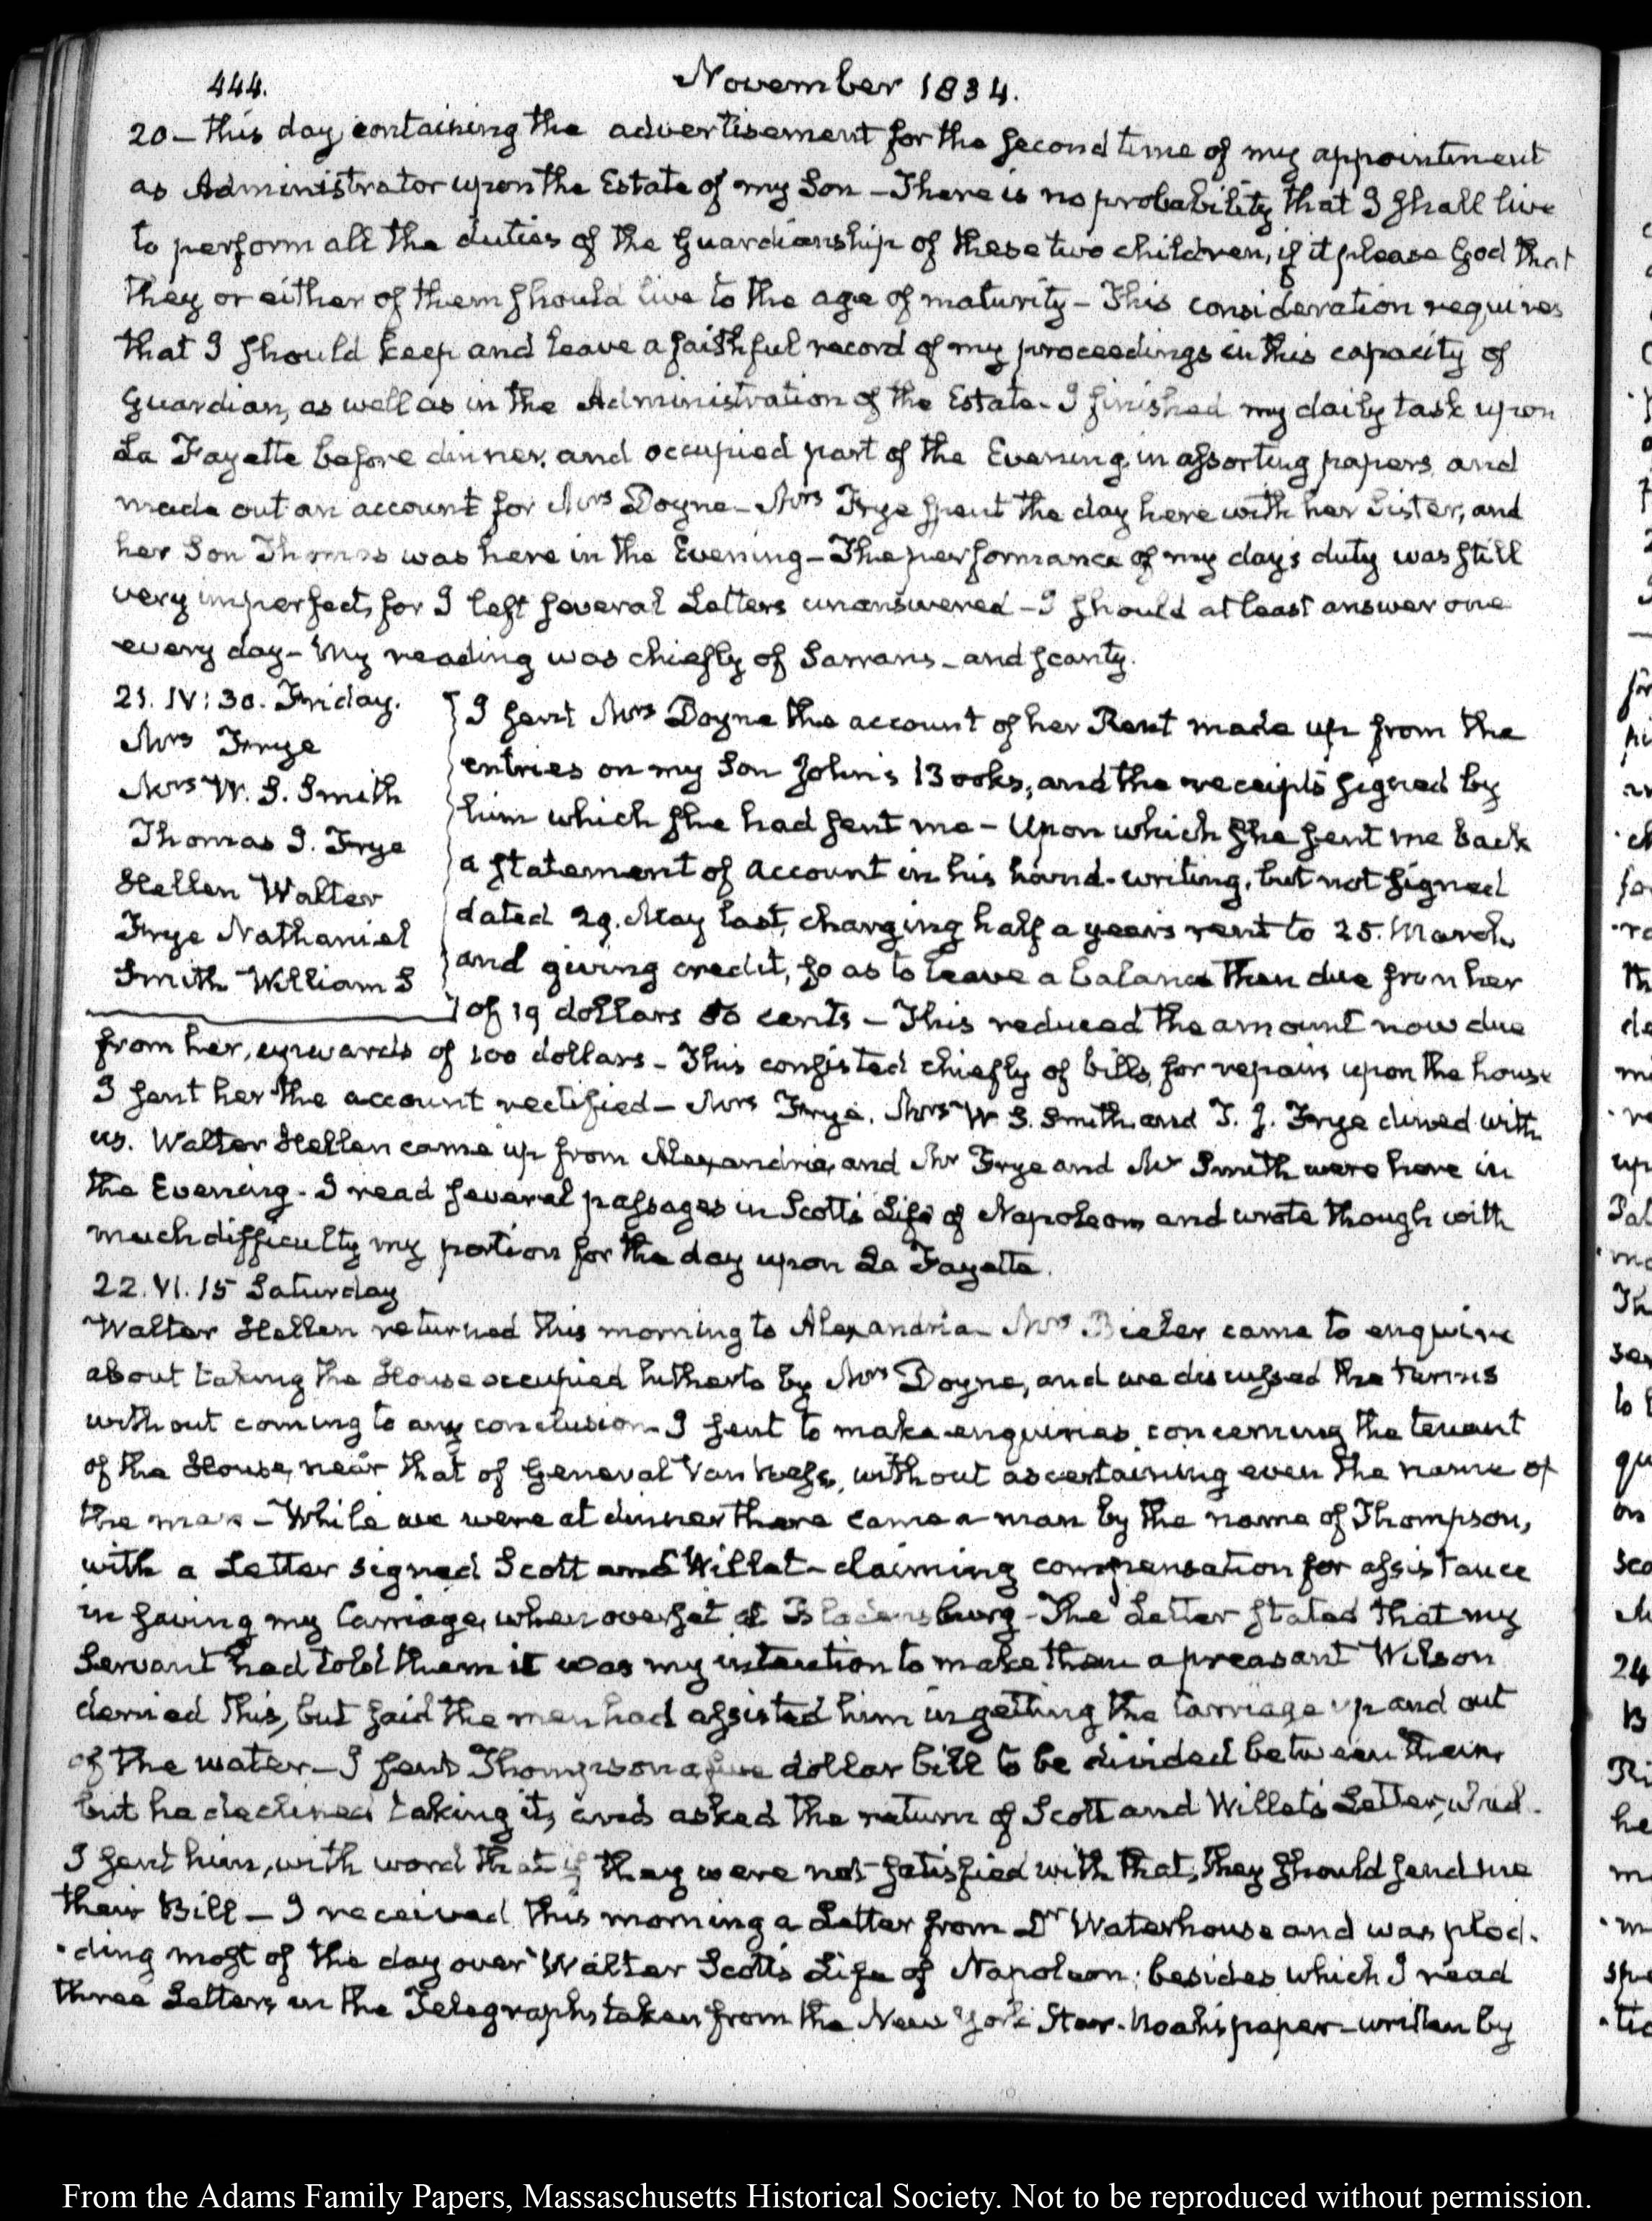 444.
November 1834.
20 - this day, containing the advertisement for the second time of my appointment
as Administrator upon the Estate of my Son - There is no probability that I shall live
to perform all the duties of the Guardianship of these two children, if it please God that
they or either of them should live to the age of maturity - This consideration requires
that I should keep and leave a faithful record of my proceedings in this capacity of
Guardian, as well as in the Administration of the Estate - I finished my daily task upon
La Fayette before dinner, and occupied part of the Evening in assorting papers, and
made out an account for Mrs Doyne - Mrs Frye spent the day here with her Sister, and
her Son Thomas was here in the Evening - The performance of my day's duty was still
very imperfect, for I left several Letters unanswered - I should at least answer one
every day - My reading was chiefly of Sarrans - and scanty.
21. IV:30. Friday.
Mrs Frye
Mrs W. S. Smith
Thomas J. Frye
Hellen Walter
Frye Nathaniel
Smith William S
I sent Mrs Doyne the account of her Rent made up from the
entries on my Son John's Books, and the receipts signed by
him which she had sent me - Upon which she sent me back
a statement of account in his hand-writing, but not signed
dated 29. May last, charging half a years rent to 25. March,
and giving credit, so as to leave a balance then due from her
of 19 dollars 50 cents - This reduced the amount now due
from her, upwards of 100 dollars - This consisted chiefly of bills for repairs upon the house
I sent her the account rectified - Mrs Frye, Mrs W S. Smith and T. J. Frye dined with
us. Walter Hellen came up from Alexandria, and Mr Frye and Mr Smith were here in
the Evening - I read several passages in Scott's Life of Napoleon, and wrote though with
much difficulty my portion for the day upon La Fayette.
22. VI. 15 Saturday
Walter Hellen returned this morning to Alexandria - Mrs came to enquire
about taking the House occupied hitherto by Mrs Doyne, and we discussed the terms
without coming to any conclusion - I sent to make enquiries concerning the tenant
of the House, near that of General Van Ness, without ascertaining even the name of
the man - While we were at dinner there came a man by the name of Thompson,
with a Letter signed Scott and Willet - claiming compensation for assistance
in saving my Carriage, when overset at Bladensburg - The Letter stated that my
Servant had told them it was my intention to make them a preasant Wilson
denied this, but said the men had assisted him in getting the Carriage up and out
of the water - I sent Thompson a five dollar bill to be divided between them,
but he declined taking it, and asked the return of Scott and Willet's Letter, which
I sent him, with word that if they were not satisfied with that, they should send me
their Bill - I received this morning a Letter from Dr Waterhouse and was plod-
-ding most of the day over Walter Scott's Life of Napoleon; besides which I read
three Letters in the Telegraph, taken from the New York Star - Noah's paper - written by
From the Adams Family Papers, Massaschusetts Historical Society. Not to be reproduced without permission.